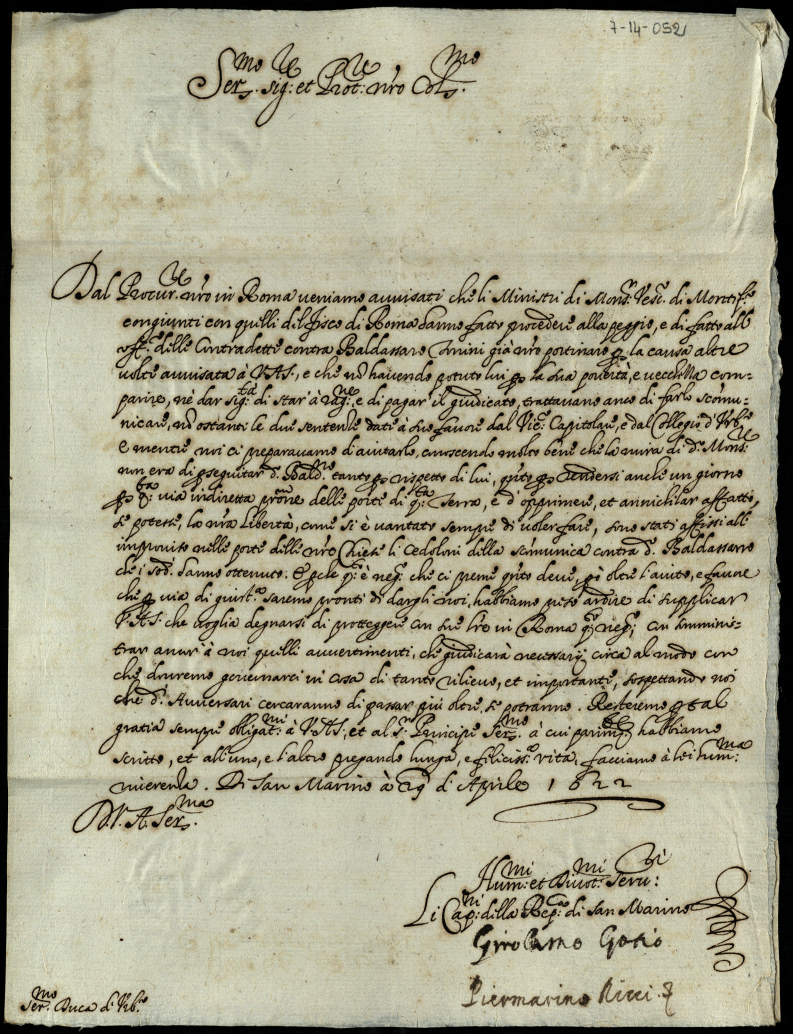 7-14-052
Ser.mo Sig.re et Prot.re n'ro Col.mo
Dal Procur.re n'ro in Roma veniamo avvisati che li Ministri di Mons.r Vesc.o di Montef.o
congiunti con quelli del fisco di Roma hanno fatto procedere alla peggio, e di fatto all'
off.o delle Contradette contra Baldassare Amini già n'ro portinaro p la causa altre
volte avvisata à V.A.S., e che nõ havendo potuto lui p la sua povertà, e vecchiezza com-
parire, nè dar sig.tà di star à rag.ne, e di pagar il giudicato, trattavano anco di farlo scõmu-
nicare, nõ ostanti le due sentenze date à suo favore dal Vic.o Capitolare, e dal Collegio d'Urb.o
e mentre noi ci preparavamo di aiutarlo, conoscendo molto bene che la mira di d.o Mons.re
non era di pseguitar d.o Bald.re tanto p rispetto di lui, q'nto p rendersi anche un giorno
p q.ta via indiretta p'rone delle porte di q.ta Terra, e d'opprimere, et annichilar affatto,
se potesse, la n'ra libertà, come si è vantato sempre di voler fare, sono stati affissi all'
improviso nelle porte delle n're Chiese li Cedoloni della scõmunica contra d.o Baldassarre
che i sod.i hanno ottenuto. E pche q.o è neg.o che ci preme q'nto deve, e oltre l'aiuto, e favore
che p via di giust.a saremo pronti di dargli noi, habbiamo preso ardire di supplicar
V.A.S. che voglia degnarsi di proteggere con sue l're in Roma q.o neg.o, con sommines-
trar ancor à noi quelli avvertimenti, che giudicarà necessarij circa al modo con
che dovremo governarci in cosa di tanto rilievo, et importante, sospettando noi
che d.i Avversari cercaranno di passar più oltre, se potranno. Resteremo p tal
gratia sempre obligat.mi à V.A.S., et al S.r Principe Ser.mo à cui parim.te habbiamo
scritto, et all'uno, e l'altro pregando lunga, e felicissi.a vita, facciamo à lei hum.ma
riverenza. Di San Marino à 29 di Aprile 1622
D. V. A. Ser.ma
Hum.mi et Divot.mi Serv.ri
Li Cap.ni della Rep.ca di San Marino
Girolamo Gotio
Piermarino Ricci
Ser.mo Duca d'Urb.o